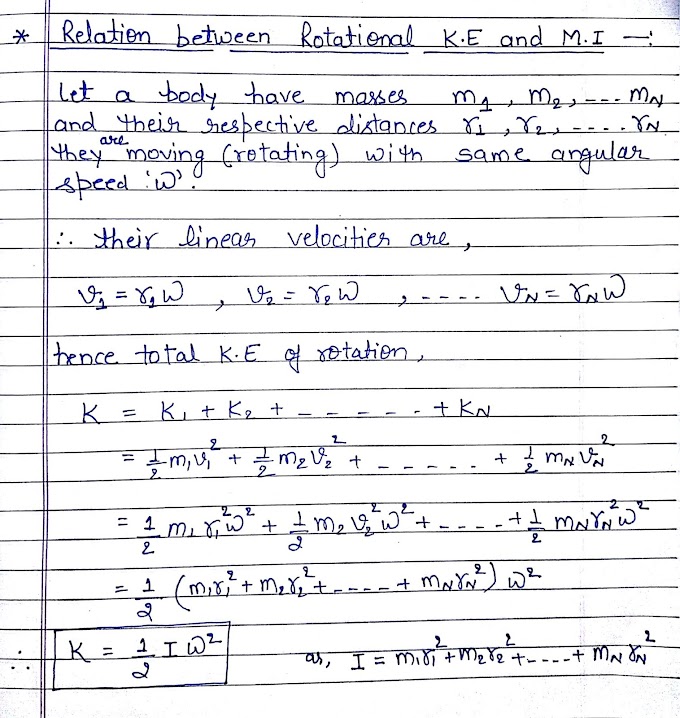 * Relation between Rotational K.E and M.I —:
Let a body have masses m₁, m₂, --- mN
and their respective distances r₁, r₂, ---- rN.
they are moving (rotating) with same angular
speed 'ω'.
∴ their linear velocities are,
v₁ = r₁ω , v₂ = r₂ω , ---- vN = rNω
hence total K.E of rotation,
K = K₁ + K₂ + ------ + KN
= 1/2 m₁v₁² + 1/2 m₂v₂² + ----- + 1/2 mNvN²
= 1/2 m₁r₁²ω² + 1/2 m₂v₂²ω² + ---- + 1/2 mNrN²ω²
= 1/2 (m₁r₁² + m₂r₂² + ---- + mNrN²) ω²
∴ K = 1/2 I ω² as, I = m₁r₁² + m₂r₂² + ---- + mN rN²